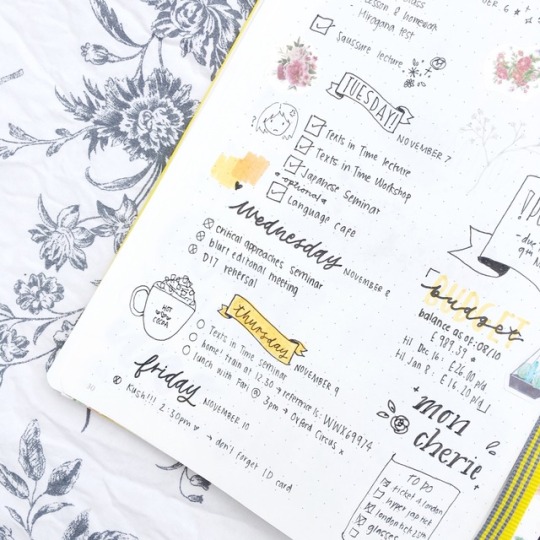 - Lesson & homework
- Hiragana test
Saussure lecture
TUESDAY!
NOVEMBER 7
Texts in Time lecture
Texts in Time Workshop
Japanese Seminar
*optional*
Language Cafe
wednesday
NOVEMBER 8
critical approaches seminar
blurt editorial meeting
D17 rehersal
HOT
COCOA
thursday
NOVEMBER 9
Texts in Time seminar
home! train at 12:30 → reference is: WWX69974
lunch with Fari @ 3pm → Oxford Circus x
friday
NOVEMBER 10
Kush!!! 2:30pm
→ don't forget ID card
BUDGET
budget
balance as of: 08/10
£989.39
till Dec 16: £26.00 p/d
till Jan 8: £16.20 p/d
mon
cherie
TO DO
ticket 4 london
hyper jap tkt
london tkt 25th
glasses